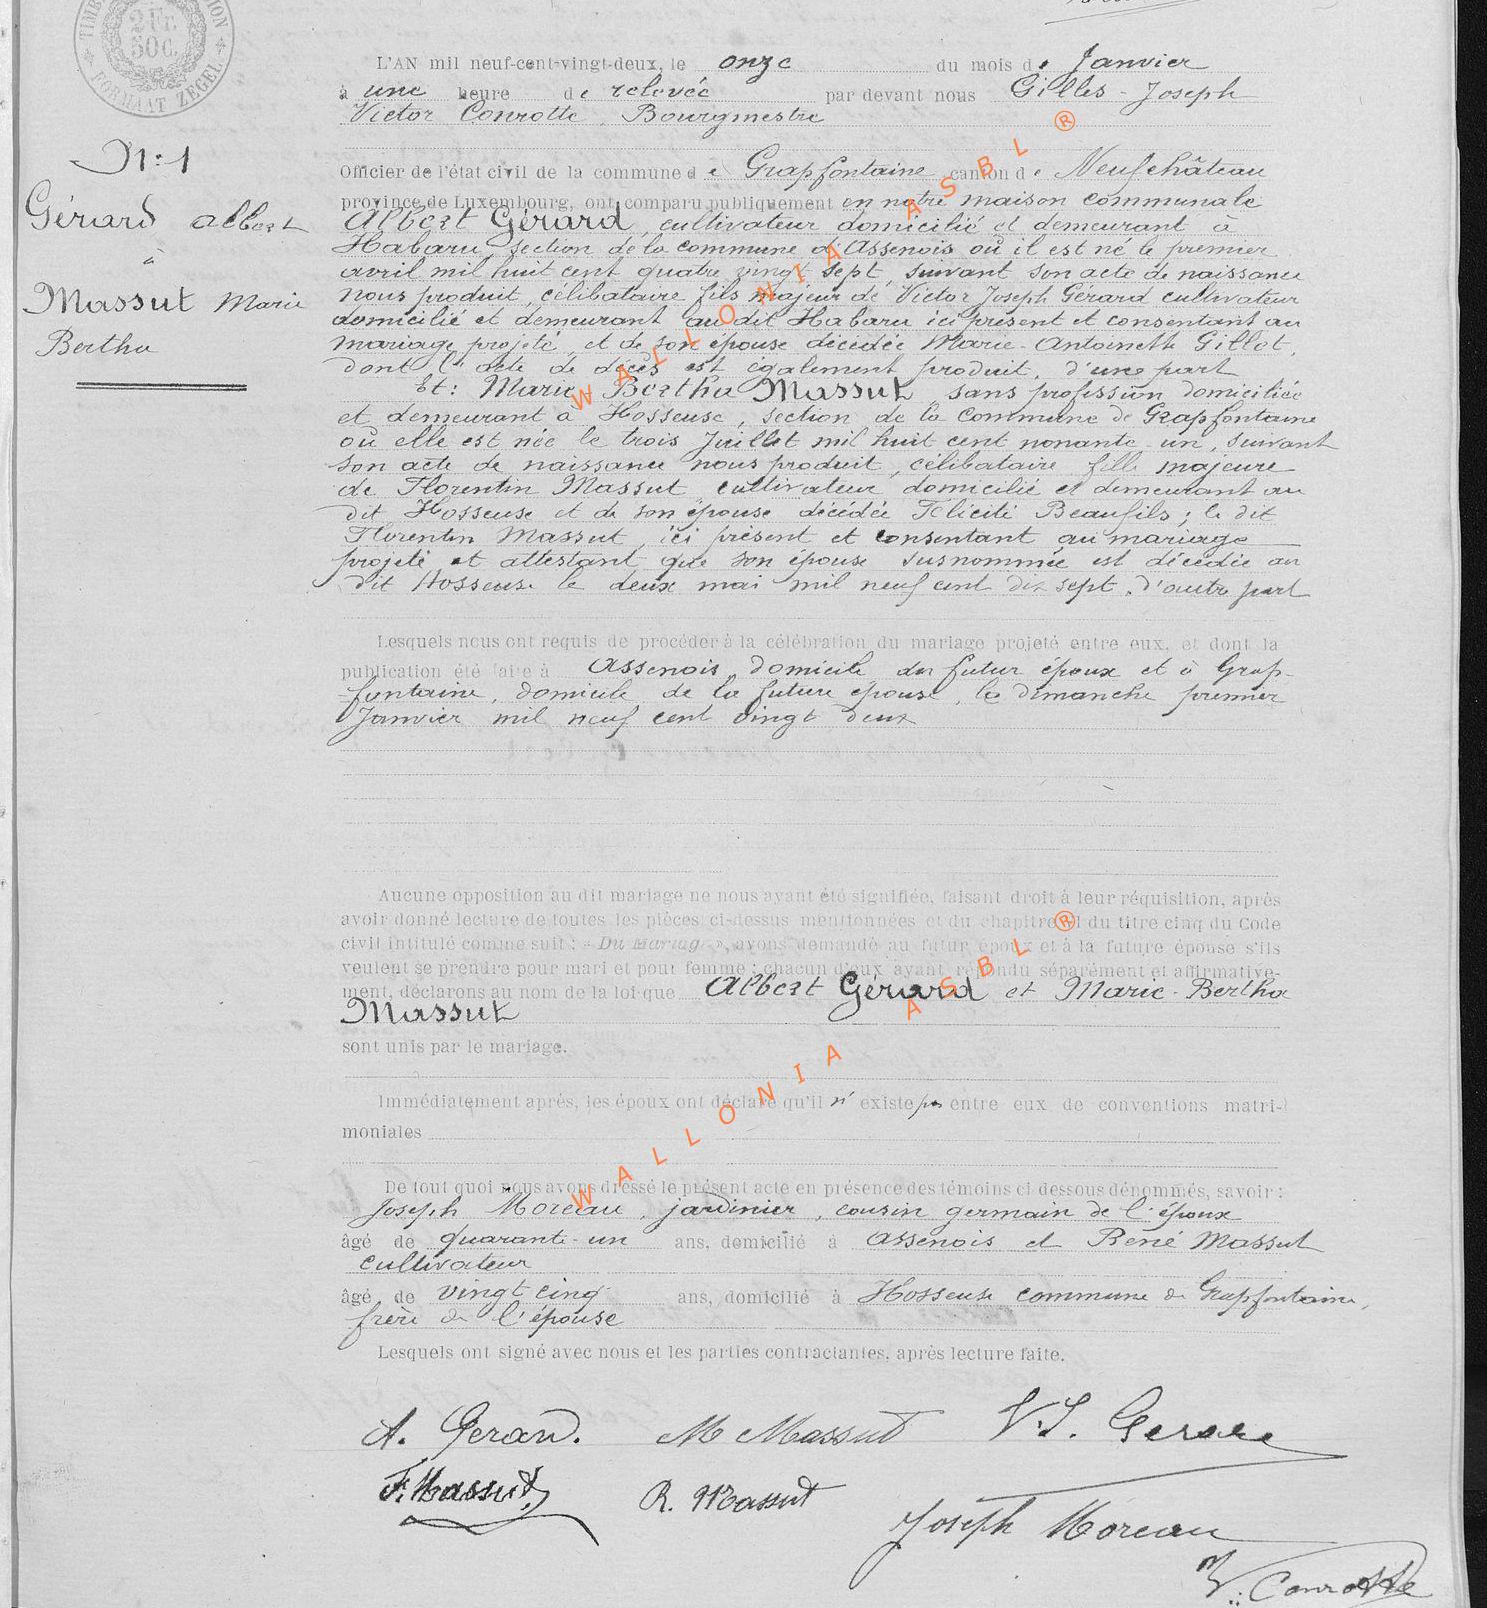 2 Fr.
50 C.
FORMAAT ZEGEL
L'AN mil neuf-cent-vingt-deux, le onze du mois de Janvier
à une heure de relevée par devant nous Gilles-Joseph
Victor Conrotte, Bourgmestre
Officier de l'état civil de la commune de Grapfontaine canton de Neufchâteau
province de Luxembourg, ont comparu publiquement en notre maison communale
N: 1
Gérard Albert
à
Massut Marie
Bertha
Albert Gérard, cultivateur domicilié et demeurant à
Habaru, section de la commune d'Assenois où il est né le premier
avril mil huit cent quatre vingt sept, suivant son acte de naissance
nous produit, célibataire fils majeur de Victor Joseph Gérard cultivateur
domicilié et demeurant au dit Habaru ici présent et consentant au
mariage projeté, et de son épouse décédée Marie-Antoinette Gillet,
dont l'acte de décès est également produit, d'une part
Et: Marie Bertha Massut, sans profession domiciliée
et demeurant à Hosseuse, section de la commune de Grapfontaine
où elle est née le trois Juillet mil huit cent nonante-un, suivant
son acte de naissance nous produit, célibataire fille majeure
de Florentin Massut, cultivateur domicilié et demeurant au
dit Hosseuse et de son épouse décédée Félicité Beaufils; le dit
Florentin Massut, ici présent et consentant au mariage
projeté et attestant que son épouse susnommée est décédée au
dit Hosseuse le deux mai mil neuf cent dix sept, d'autre part
Lesquels nous ont requis de procéder à la célébration du mariage projeté entre eux, et dont la
publication été faite à Assenois, domicile du futur époux et à Grap-
fontaine, domicile de la future épouse, le dimanche premier
Janvier mil neuf cent vingt deux
Aucune opposition au dit mariage ne nous ayant été signifiée, faisant droit à leur réquisition, après
avoir donné lecture de toutes les pièces ci-dessus mentionnées et du chapitre du titre cinq du Code
civil intitulé comme suit : « Du Mariage », avons demandé au futur époux et à la future épouse s'ils
veulent se prendre pour mari et pour femme ; chacun d'eux ayant répondu séparément et affirmative-
ment, déclarons au nom de la loi que Albert Gérard et Marie-Bertha
Massut
sont unis par le mariage.
Immédiatement après, les époux ont déclaré qu'il n'existe pas entre eux de conventions matri-
moniales
De tout quoi nous avons dressé le présent acte en présence des témoins ci dessous dénommés, savoir :
Joseph Moreau, jardinier, cousin germain de l'époux
âgé de quarante-un ans, domicilié à Assenois et René Massut
cultivateur
âgé de vingt cinq ans, domicilié à Hosseuse commune de Grapfontaine,
frère de l'épouse
Lesquels ont signé avec nous et les parties contractantes, après lecture faite.
A. Gerard. M Massut V.J. Gerard
F. Massut R. Massut
Joseph Moreau
V. Conrotte
WALLONIA ASBL ®
WALLONIA ASBL ®